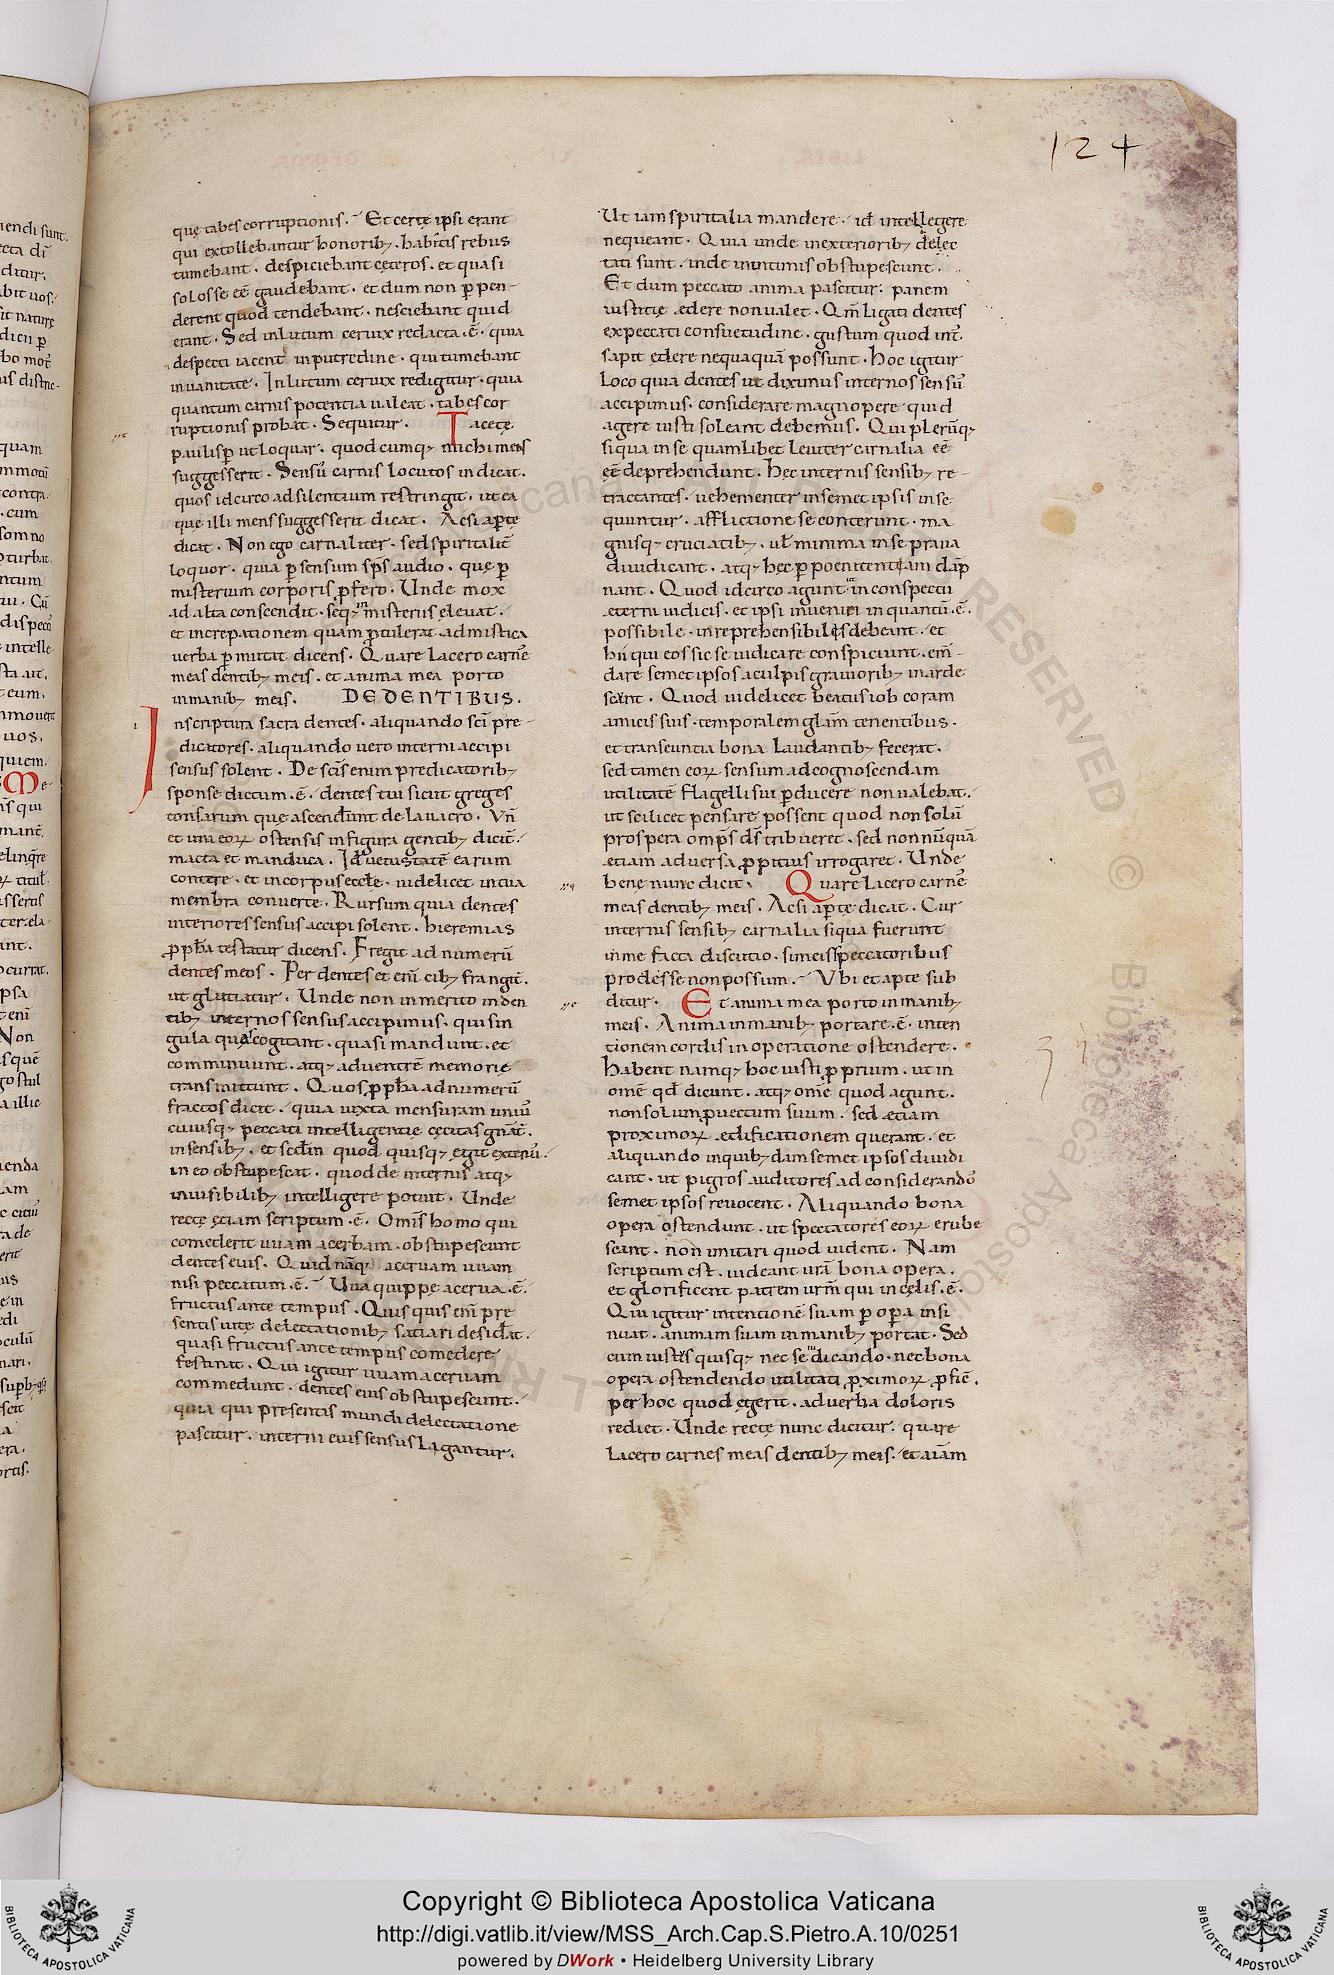 124
quę tabes corruptionis. Et certę ipsi erant
qui extollebantur honorib; . habitis rebus
tumebant . despiciebant cęteros . et quasi
solos se eē gaudebant . et dum non ꝑpen-
derent quod tendebant . nesciebant quid
erant . Sed inlutum ceruix redacta .ē. quia
despecti iacent inputredine . qui tumebant
inuanitate . Inlutum ceruix redigitur . quia
quantum carnis potentia ualeat . tabes cor
ruptionis probat . Sequitur . Tacetę
paulisꝑ ut loquar . quodcumq; michi mens
suggesserit . Sensū carnis locutos indicat .
quos idcirco adsilentium restringit . ut ea
quę illi mens suggesserit dicat . Acsi aꝑtę
dicat . Non ego carnaliter . sed spiritalit̄
loquor . quia ꝑ sensum sp̄s audio . quę ꝑ
misterium corporis ꝓfero . Unde mox
ad alta conscendit . seq; in misteriis eleuat .
et increpationem quam ꝓtulerat . admistica
uerba ꝑmutat dicens . Quare lacero carnē
meas dentib; meis . et anima mea porto
inmanib; meis . DE DENTIBUS .
Inscriptura sacra dentes . aliquando sc̄i pre-
dicatores . aliquando uero interni accipi
sensus solent . De sc̄is enim predicatorib;
sponse dictum .ē. dentes tui sicut greges
tonsarum quę ascendunt de lauacro . Vn̄
et uni eoꝝ ostensis infigura gentib; dicit̄ .
macta et manduca . Id uetustatē earum
contere . et incorpus eccłe . uidelicet intua
membra conuerte . Rursum quia dentes
interiores sensus accipi solent . hieremias
ꝓph̄a testatur dicens . Fregit ad numerū
dentes meos . Per dentes et eni̅ cib; frangit̄ .
ut glutiatur . Unde non inmerito inden
tib; internos sensus accipimus . qui sin
gula quę cogitant . quasi mandunt . et
comminuunt . atq; aduentrē memorię
transmittunt . Quos ꝓph̄a adnumerū
fractos dicit . quia iuxta mensuram uniu̅
cuiusq; peccati intelligentię cęcitas gn̄at̄ .
insensib; . et scd̄m quod quisq; egit exteriu̅ .
in eo obstupescat . quod de internis atq;
inuisibilib; intelligere potuit . Unde
rectę etiam scriptum .ē. Omis̄ homo qui
comederit uuam acerbam . obstupescunt
dentes eius . Quid nāq; aceruam uuam
nisi peccatum .ē. Uua quippe acerua .ē.
fructus ante tempus . Quisquis eni̅ pre
sentis uitę delectationib; satiari desid̄at .
quasi fructus ante tempus comedere
festinat . Qui igitur uuam aceruam
commedunt . dentes eius obstupescunt .
quia qui presentis mundi delectatione
pascitur . interni eius sensus ligantur .
Ut iam spiritalia mandere . id intellegere
nequeant . Quia unde inexteriorib; delec
tati sunt . inde inintimis obstupescunt .
Et dum peccato anima pascitur . panem
iustitię edere nonualet . Qm̄ ligati dentes
expeccati consuetudine . gustum quod int̄ .
sapit edere nequaquā possunt . Hoc igitur
loco quia dentes ut diximus internos sensū
accipimus . considerare magnopere quid
agere iusti soleant debemus . Qui plerūq;
siqua inse quamlibet leuiter carnalia eē
deprehendunt . hęc internis sensib; re-
tractantes . uehementer insemet ipsis inse
quuntur . afflictione se conterunt . ma
gnisq; cruciatib; . uł minima inse praua
diiudicant . atq; hęc ꝑ poenitentiam dāp
nant . Quod idcirco agunt in conspectu
ęterni iudicis . et ipsi inueniri inquantū .ē.
possibile . inreprehensibiles debeant . et
hii qui eos sic se iudicare conspiciunt . em̄-
dare semet ipsos aculpis grauiorib; inarde
scant . Quod uidelicet beatus iob coram
amicis suis . temporalem glām tenentibus .
et transeuntia bona laudantib; fecerat .
sed tamen eoꝝ sensum adcognoscendam
utilitatē flagelli sui ꝑducere non ualebat .
ut scilicet pensare possent quod nonsolū
prospera omps̄ ds̄ tribueret . sed nonnu̅quā
etiam aduersa ꝓpitius irrogaret . Unde
bene nunc dicit . Quare lacero carnē
meas dentib; meis . Acsi aꝑtę dicat . Cur
internis sensib; carnalia siqua fuerunt
inme facta discutio . si meis speccatoribus
prodesse non possum . Vbi et apte sub
ditur . Et anima mea porto inmanib;
meis . Anima inmanib; portare .ē. inten
tionem cordis in operatione ostendere .
Habent namq; hoc iusti ꝓprium . ut in
omē qd̄ dicunt . atq; omē quod agunt .
nonsolum ꝓuectum suum . sed etiam
proximoꝝ ędificationem querant . et
aliquando inquib;dam semet ipsos diiudi
cant . ut pigros auditores ad considerandū
semet ipsos reuocent . Aliquando bona
opera ostendunt . ut spectatores eoꝝ erube
scant . non imitari quod uident . Nam
scriptum est . uideant urā bona opera .
et glorificent patrem urm̄ qui incęlis .ē.
Qui igitur intentionē suam ꝑ oꝑa insi
nuat . animam suam inmanib; portat . Sed
cum iustus quisq; nec se iudicando . nec bona
opera ostendendo utilitati ꝓximoꝝ ꝓfic̄ .
per hoc quod ęgerit . aduerba doloris
rediet . Unde rectę nunc dicitur . quare
lacero carnes meas dentib; meis . et aiām
Copyright © Biblioteca Apostolica Vaticana
http://digi.vatlib.it/view/MSS_Arch.Cap.S.Pietro.A.10/0251
powered by DWork • Heidelberg University Library
BIBLIOTECA APOSTOLICA VATICANA
BIBLIOTECA APOSTOLICA VATICANA